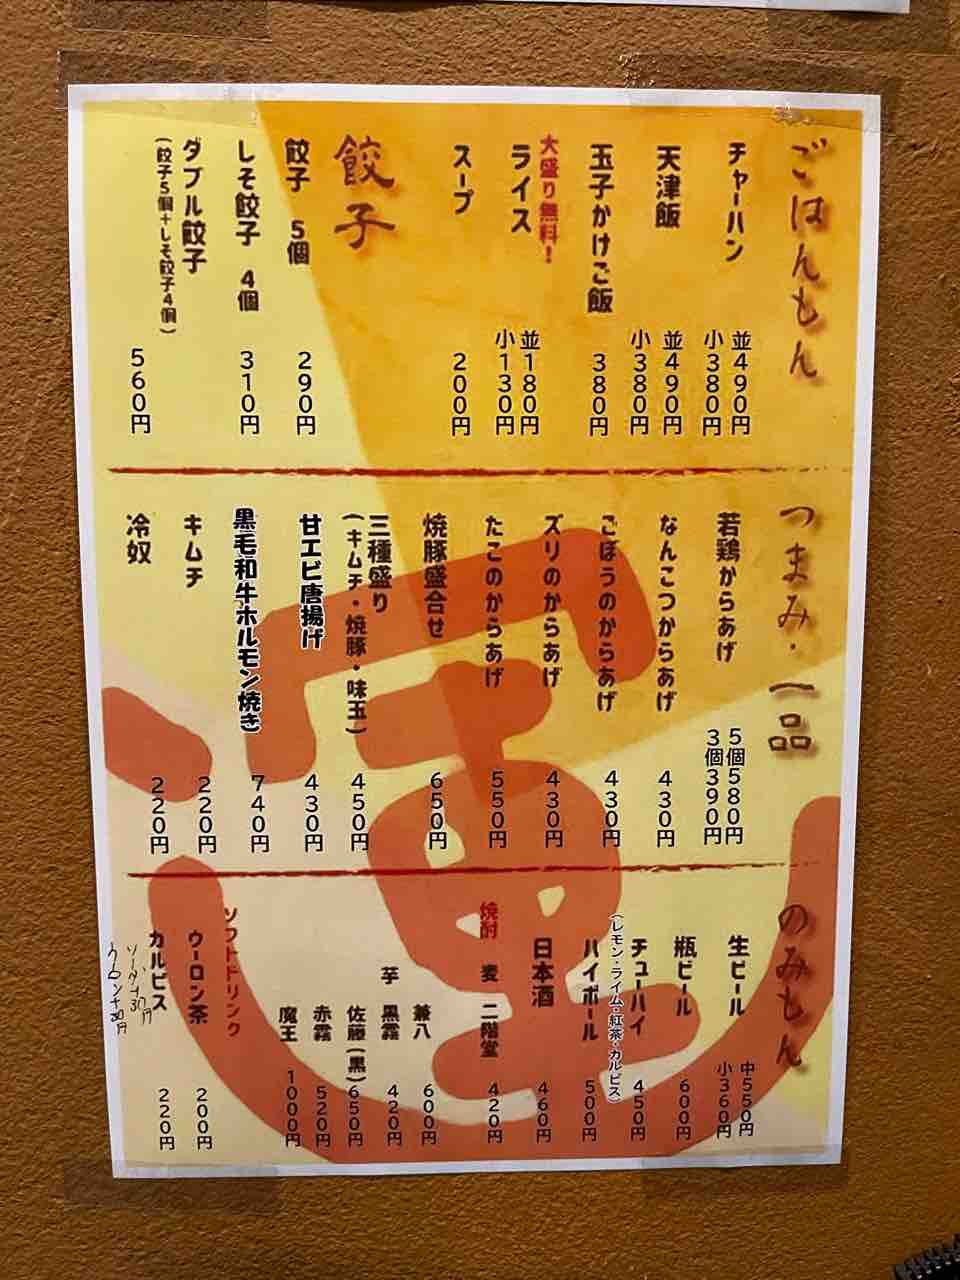 ごはんもん
チャーハン
並490円
小380円
天津飯
並490円
小380円
玉子かけご飯
380円
大盛り無料！
ライス
並180円
小130円
スープ
200円
餃子
餃子 5個
290円
しそ餃子 4個
310円
ダブル餃子
(餃子5個+しそ餃子4個)
560円
つまみ・一品
若鶏からあげ
5個580円
3個390円
なんこつからあげ
430円
ごぼうのからあげ
430円
ズリのからあげ
430円
たこのからあげ
550円
焼豚盛合せ
650円
三種盛り
(キムチ・焼豚・味玉)
450円
甘エビ唐揚げ
430円
黒毛和牛ホルモン焼き
740円
キムチ
220円
冷奴
220円
のみもん
生ビール
中550円
小360円
瓶ビール
600円
チューハイ
(レモン・ライム・紅茶・カルピス)
450円
ハイボール
500円
日本酒
460円
焼酎 麦 二階堂
420円
兼八
600円
芋 黒霧
420円
佐藤(黒)
650円
赤霧
520円
魔王
1000円
ソフトドリンク
ウーロン茶
200円
カルピス
220円
ソーダ+30円